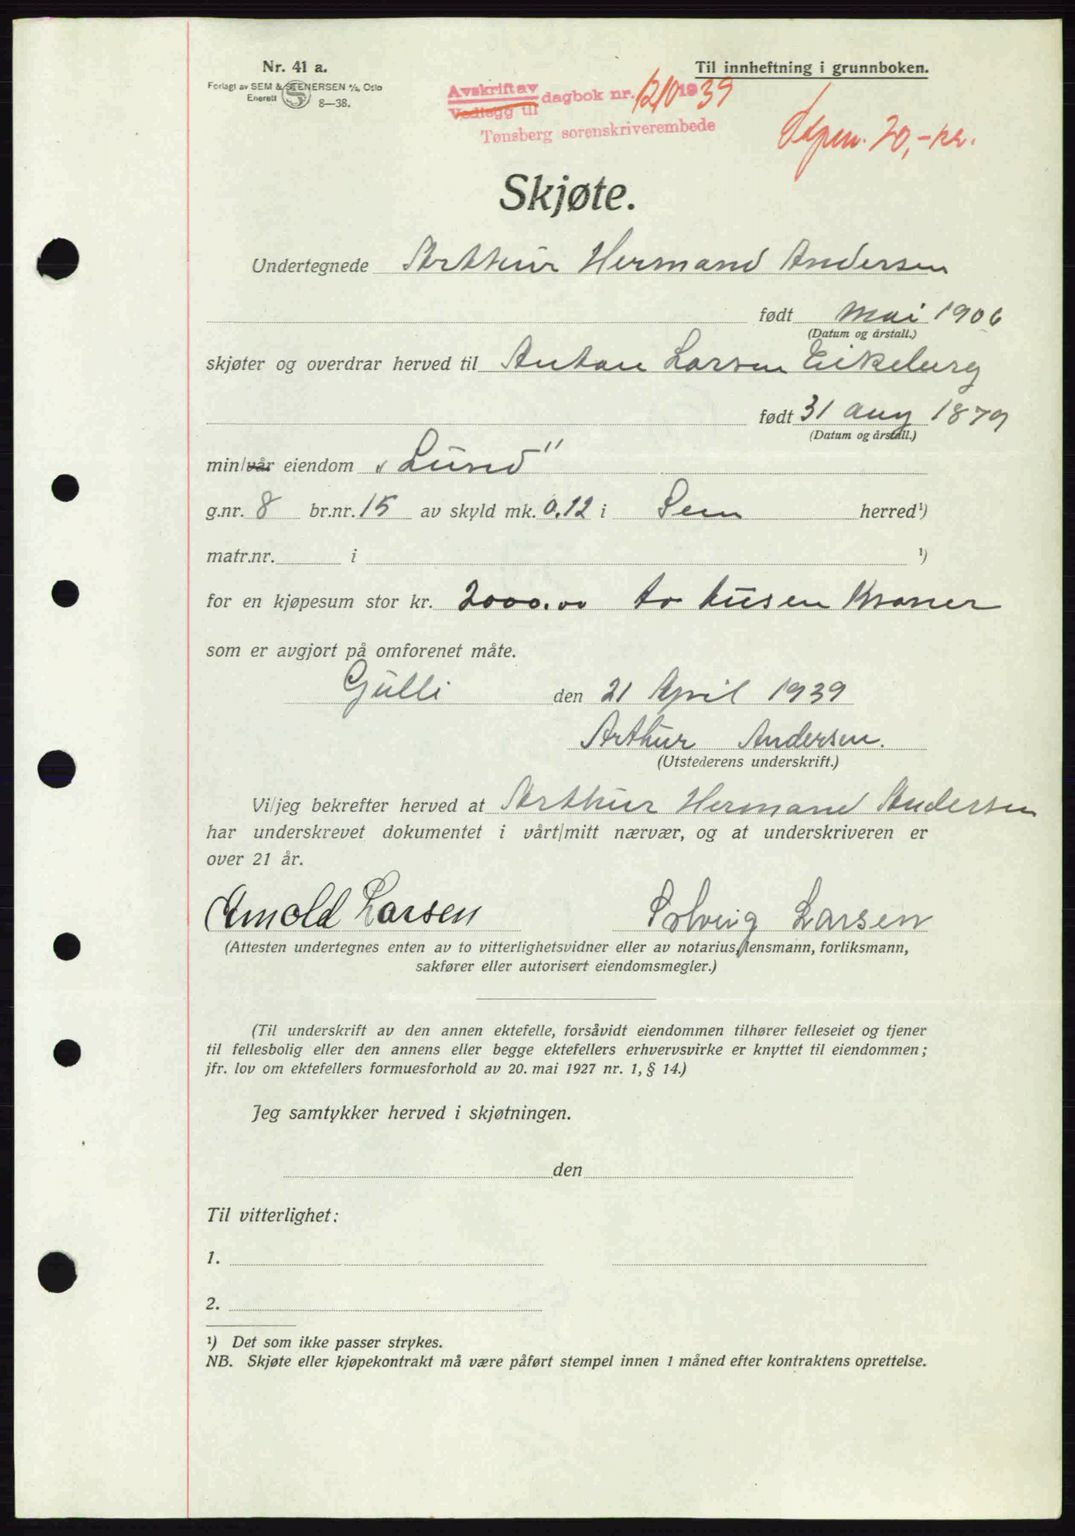 Nr. 41 a.
Forlagt av SEM & STENERSEN A/S, Oslo
Enerett 8—38.
Til innheftning i grunnboken.
Avskrift av
Vedlegg til
dagbok nr. 1210 1939
Tønsberg sorenskriverembede
Stpm. 20,- kr.
Skjøte.
Undertegnede Arthur Hermand Andersen
født mai 1906
(Datum og årstall.)
skjøter og overdrar herved til Anton Larsen Eikeberg
født 31 aug 1879
(Datum og årstall.)
min/vår eiendom „Lund"
g.nr. 8 br.nr. 15 av skyld mk. 0.12 i Sem herred¹)
matr.nr. i ¹)
for en kjøpesum stor kr. 2000.00 to tusen Kroner
som er avgjort på omforenet måte.
Gulli den 21 April 1939
Arthur Andersen.
(Utstederens underskrift.)
Vi/jeg bekrefter herved at Arthur Hermand Andersen
har underskrevet dokumentet i vårt/mitt nærvær, og at underskriveren er
over 21 år.
Arnold Larsen Solveig Larsen
(Attesten undertegnes enten av to vitterlighetsvidner eller av notarius, lensmann, forliksmann,
sakfører eller autorisert eiendomsmegler.)
(Til underskrift av den annen ektefelle, forsåvidt eiendommen tilhører felleseiet og tjener
til fellesbolig eller den annens eller begge ektefellers erhvervsvirke er knyttet til eiendommen;
jfr. lov om ektefellers formuesforhold av 20. mai 1927 nr. 1, § 14.)
Jeg samtykker herved i skjøtningen.
den
Til vitterlighet:
1.
2.
¹) Det som ikke passer strykes.
NB. Skjøte eller kjøpekontrakt må være påført stempel innen 1 måned efter kontraktens oprettelse.